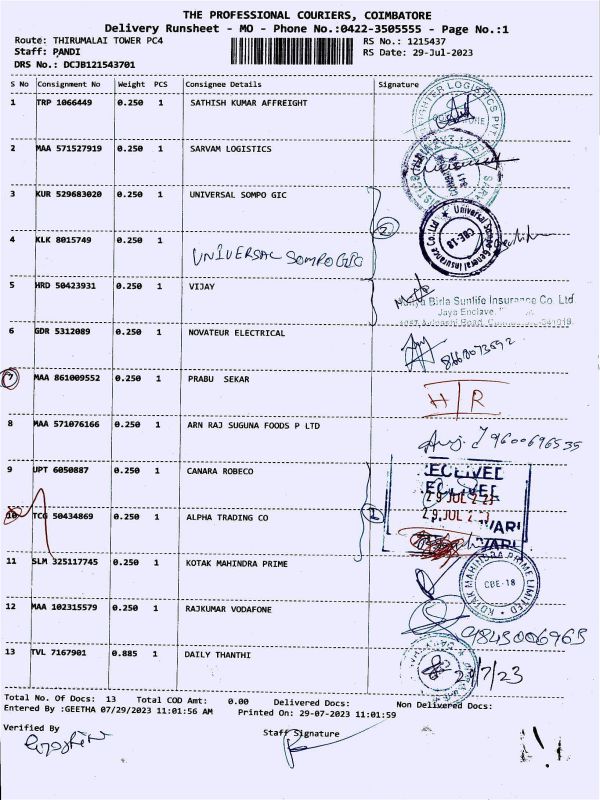 THE PROFESSIONAL COURIERS, COIMBATORE
Delivery Runsheet - MO - Phone No.:0422-3505555 - Page No.:1
Route: THIRUMALAI TOWER PC4
RS No.: 1215437
Staff: PANDI
RS Date: 29-Jul-2023
DRS No.: DCJB121543701
S No Consignment No Weight PCS Consignee Details Signature
1 TRP 1066449 0.250 1 SATHISH KUMAR AFFREIGHT
2 MAA 571527919 0.250 1 SARVAM LOGISTICS
3 KUR 529683020 0.250 1 UNIVERSAL SOMPO GIC
2
Universal Sompo General Insurance Co. Ltd
CBE-18
4 KLK 8015749 0.250 1
UNIVERSAL SOMPO GIC
5 HRD 50423931 0.250 1 VIJAY
Birla Sunlife Insurance Co. Ltd
Jaya Enclave,
6 GDR 5312089 0.250 1 NOVATEUR ELECTRICAL
7 MAA 861009552 0.250 1 PRABU SEKAR
H R
8 MAA 571076166 0.250 1 ARN RAJ SUGUNA FOODS P LTD
9600696535
9 UPT 6050887 0.250 1 CANARA ROBECO
10 TCG 50434869 0.250 1 ALPHA TRADING CO
11 SLM 325117745 0.250 1 KOTAK MAHINDRA PRIME
KOTAK MAHINDRA PRIME LIMITED
CBE-18
12 MAA 102315579 0.250 1 RAJKUMAR VODAFONE
9845006965
13 TVL 7167901 0.885 1 DAILY THANTHI
Total No. Of Docs: 13 Total COD Amt: 0.00 Delivered Docs: Non Delivered Docs:
Entered By :GEETHA 07/29/2023 11:01:56 AM Printed On: 29-07-2023 11:01:59
Verified By
Staff Signature